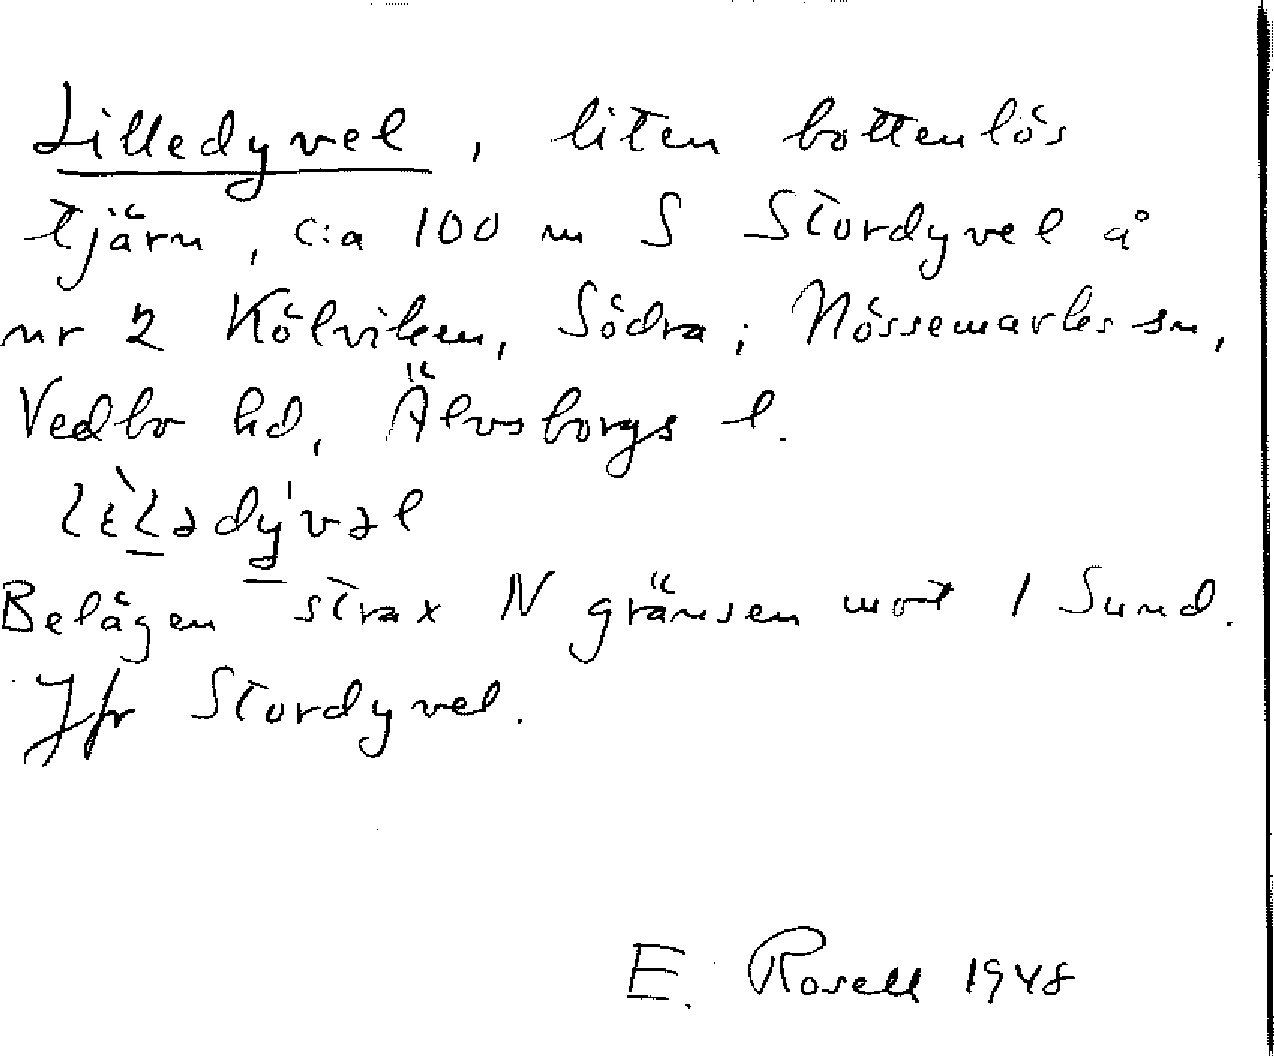 Lilledyvel, liten bottenlös
tjärn, c:a 100 m S Stordyvel å
nr 2 Kölviken, Södra; Nössemarks sn,
Vedbo hd, Älvsborgs l.
Belägen strax N gränsen mot 1 Sund.
Jfr Stordyvel.
E. Rosell 1948